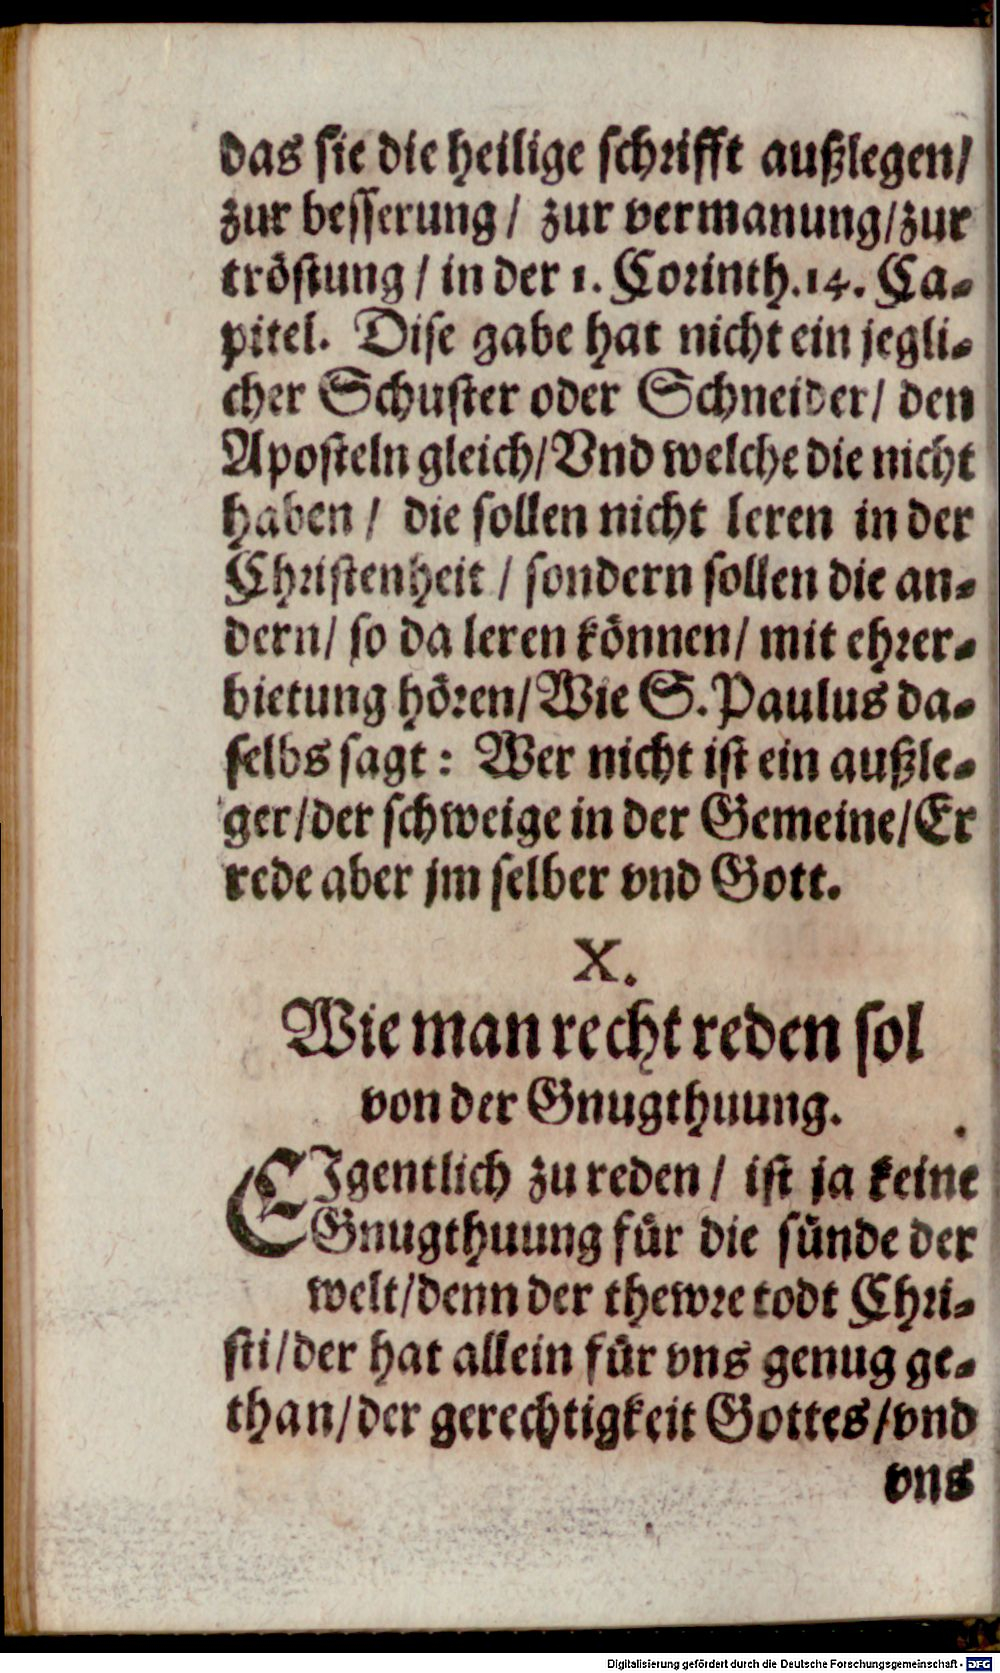 das sie die heilige schrifft außlegen/
zur besserung/ zur vermanung/zur
tröstung/ in der 1. Corinth.14. Ca-
pitel. Dise gabe hat nicht ein jegli-
cher Schuster oder Schneider/ den
Aposteln gleich/Vnd welche die nicht
haben/ die sollen nicht leren in der
Christenheit/ sondern sollen die an-
dern/ so da leren können/ mit ehrer-
bietung hören/Wie S. Paulus da-
selbs sagt: Wer nicht ist ein außle-
ger/der schweige in der Gemeine/Er
rede aber jm selber vnd Gott.
X.
Wie man recht reden sol
von der Gnugthuung.
EIgentlich zu reden/ ist ja keine
Gnugthuung für die sünde der
welt/denn der thewre todt Chri-
sti/der hat allein für vns genug ge-
than/der gerechtigkeit Gottes/vnd
vns
Digitalisierung gefördert durch die Deutsche Forschungsgemeinschaft - DFG